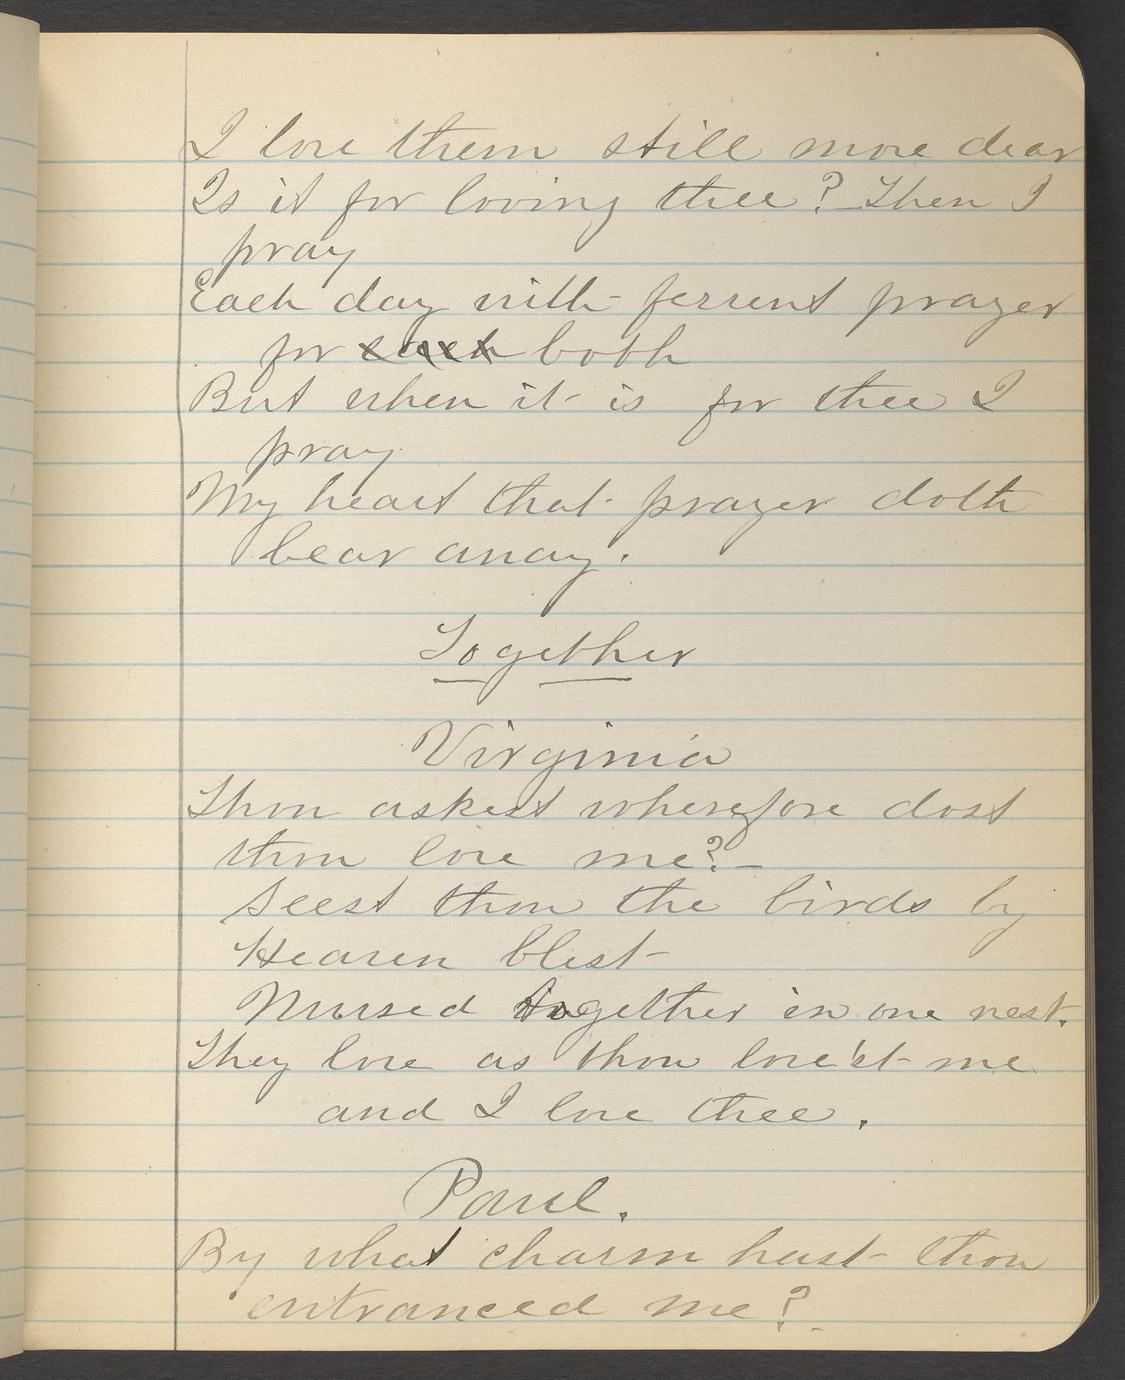 I love them still more dear
Is it for loving thee? Then I
pray
Each day with fervent prayer
for each both
But when it is for thee I
pray
My heart that prayer doth
bear away.
Together
Virginia
Thou askest wherefore dost
thou love me?
Seest thou the birds by
Heaven blest
Nursed together in one nest.
They love as thou love'st me
and I love thee.
Paul.
By what charm hast thou
entranced me?